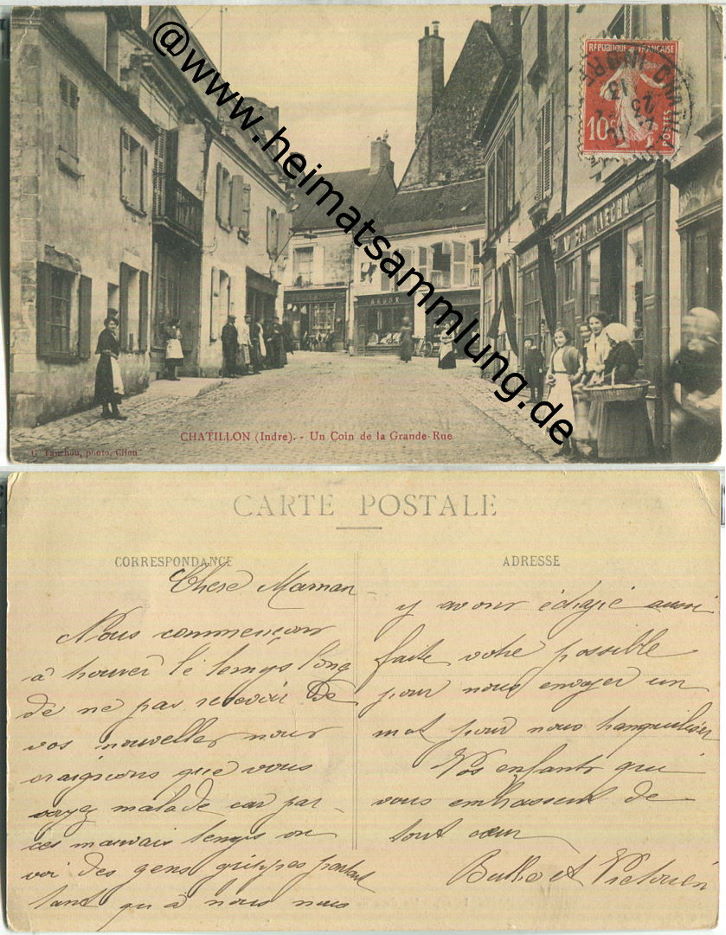 @www.heimatsammlung.de
REPUBLIQUE FRANÇAISE
10c
POSTES
CHATILLON (Indre). - Un Coin de la Grande-Rue
photo, Clion
CARTE POSTALE
CORRESPONDANCE
Chere Maman
Nous commençons
à trouver le temps long
de ne pas recevoir de
vos nouvelles nous
craignions que vous
soyez malade car par
ces mauvais temps on
voi des gens grippes partout
tant qu à nous nous
ADRESSE
y avons échapé aussi
faite votre possible
pour nous envoyer un
mot pour nous tranquiliser
Vos enfants qui
vous embrassent de
tout cœur
et Victorien